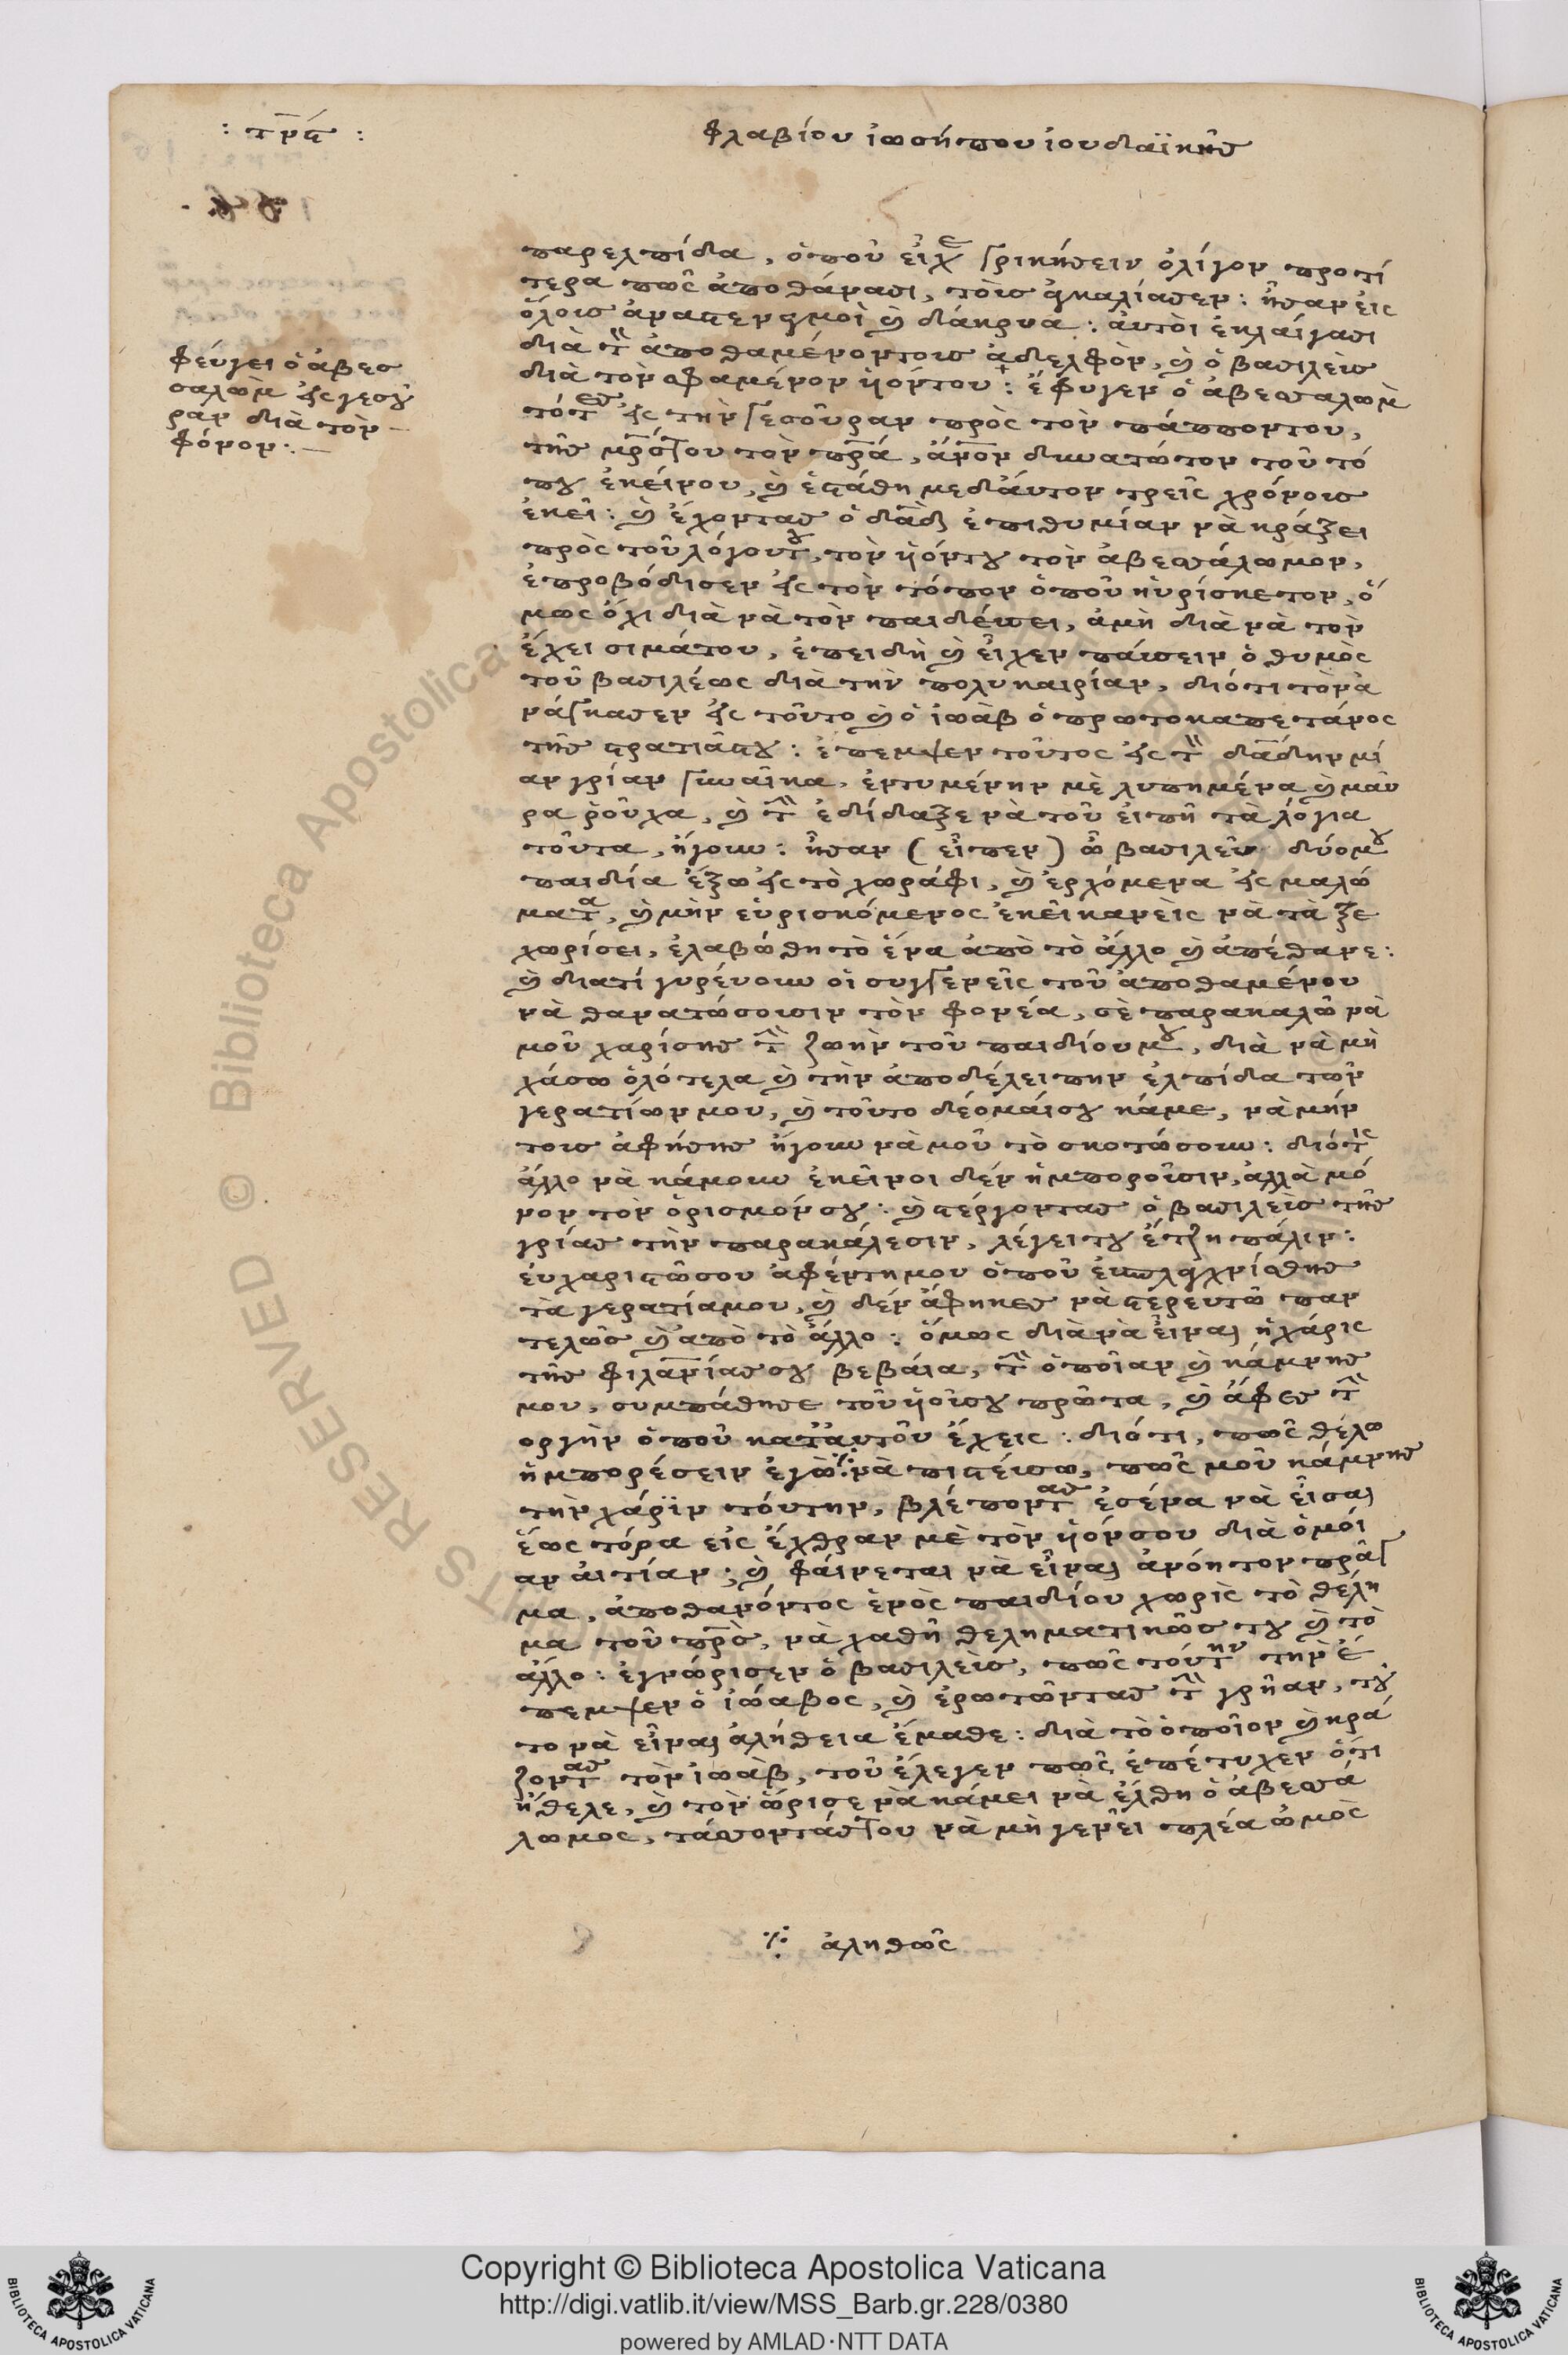 : τρϛ :
φλαβίου ἰωσήπου ἰουδαϊκῆς
παρελπίδα, ὁποῦ εἶχε γρικήσειν ὀλίγον προτί
τερα πῶς ἀποθάνασι, τοὺς ἀγκαλίασεν: ἦσαν εἰς
ὅλους ἀναστεναγμοὶ καὶ δάκρυα: αὐτοὶ ἐκλαίγασι
διὰ τὸν ἀποθαμένοντους ἀδελφὸν, καὶ ὁ βασιλεὺς
διὰ τὸν σφαμένον ὑιόντου: ἔφυγεν ὁ ἀβεσσαλὼμ
τότες εἰς τὴν γεσοῦραν πρὸς τὸν πάπποντου,
τῆς μρ̅ό̅ςτου τὸν πρ̅ά̅, ἄν̅ο̅ν δυνατώτον τοῦ τό
που ἐκείνου, καὶ ἐστάθη μεδαύτον τρεῖς χρόνους
ἐκεῖ: καὶ ἔχοντας ὁ δα̅δ ἐπιθυμίαν νὰ κράξει
πρὸς τοῦ λόγουτου, τὸν ὑιόντου τὸν ἀβεσσάλωμον,
ἐπροβόδισεν εἰς τὸν τόπον ὁποῦ ηὑρίσκετον, ὅ
μως ὄχι διὰ νὰ τὸν παιδέψει, ἀμὴ διὰ νὰ τὸν
ἔχει σιμάτου, ἐπειδὴ καὶ εἶχεν πάυσειν ὁ θυμὸς
τοῦ βασιλέως διὰ τὴν πολυκαιρίαν, διότι τὸν ἀ
νάγκασεν εἰς τοῦτο καὶ ὁ ἰωὰβ ὁ πρωτοκαπετάνος
τῆς στρατιᾶςτου: ἔπεμψεν τοῦτος εἰς τὸν δα̅δην μί
αν γρίαν γυναῖκα, ἐντυμένην μὲ λυπημένα καὶ μαῦ
ρα ῥοῦχα, καὶ τὴν ἐδίδαξε νὰ τοῦ εἰπῆ τὰ λόγια
τοῦτα, ἤγουν: ἦσαν (εἶπεν) ὦ βασιλεῦ δύομου
παιδία ἔξω εἰς τὸ χωράφι, καὶ ἐρχόμενα εἰς μαλώ
ματα, καὶ μὴν εὑρισκόμενος ἐκεῖ κανεὶς νὰ τὰ ξε
χωρίσει, ἐλαβώθη τὸ ἕνα ἀπὸ τὸ ἄλλο καὶ ἀπέθανε:
καὶ διατί γυρέυουν οἱ συγγενεῖς τοῦ ἀποθαμένου
νὰ θανατώσουσιν τὸν φονέα, σὲ παρακαλῶ νὰ
μοῦ χαρίσης τὴν ζωὴν τοῦ παιδίουμου, διὰ νὰ μὴ
χάσω ὁλότελα καὶ τὴν ἀποδέλειπην ἐλπίδα τῶν
γερατίων μου, καὶ τοῦτο δέομάισου κάμε, νὰ μὴν
τους ἀφήσης ἤγουν νὰ μοῦ τὸ σκοτώσουν: διότις
ἄλλο νὰ κάμουν ἐκεῖνοι δὲν ἠμποροῦσιν, ἀλλὰ μό
νον τὸν ὁρισμόνσου: καὶ στέργοντας ὁ βασιλεὺς τῆς
γρίας τὴν παρακάλεσιν, λέγει του ἔτζη πάλιν:
ἐυχαριστῶσου ἀφέντημου ὁποῦ ἐυσπλαγχνίσθης
τὰ γερατίαμου, καὶ δὲν ἄφηκες νὰ στερευτῶ παν
τελῶς καὶ ἀπὸ τὸ ἄλλο: ὅμως διὰ νὰ εἶναι ἡ χάρις
τῆς φιλαν̅ίας σου βεβάια, τὴν ὁποῖαν καὶ κάμνης
μου, συμπάθησε τοῦ ὑιοῦσου πρῶτα, καὶ ἄφες τὴν
οργὴν ὁποῦ κατ' αὐτοῦ ἔχεις: διότι, πῶς θέλω
ἠμπορέσειν ἐγὼ⁒ νὰ πιστέυσω, πῶς μοῦ κάμνης
τὴν χάριν τόυτην, βλέποντας ἐσένα νὰ εἶσαι
ἕως τόρα εἰς ἔχθραν μὲ τὸν ὑιόνσου διὰ ὁμοί
αν ἀιτίαν; καὶ φάινεται νὰ εἶναι ἀνόητον πρᾶγ
μα, ἀποθανόντος ἑνὸς παιδίου χωρὶς τὸ θέλη
μα τοῦ πρ̅ὸ̅ς, νὰ χαθῆ θεληματικῶς του καὶ τὸ
ἄλλο: ἐγνώρισεν ὁ βασιλεὺς, πῶς τόυτην τὴν ἔ
πεμψεν ὁ ἰώαβος, καὶ ἐρωτῶντας τὴν γρῆαν, τοῦ
το νὰ εἶναι ἀλήθεια ἔμαθε: διὰ τὸ ὁποῖον καὶ κρά
ζοντας τὸν ἰωὰβ, τοῦ ἔλεγεν πῶς ἐπέτυχεν ὅτι
ἤθελε, καὶ τὸν ὥρισε νὰ κάμει νὰ ἔλθη ὁ ἀβεσσά
λωμος, τάσσοντάςτου νὰ μὴ γενεῖ πλέα ὠμὸς
φέυγει ὁ ἀβεσ
σαλὼμ εἰς γεσοῦ
ραν διὰ τὸν
φόνον:—
⁒ ἀληθῶς
Copyright © Biblioteca Apostolica Vaticana
http://digi.vatlib.it/view/MSS_Barb.gr.228/0380
powered by AMLAD·NTT DATA